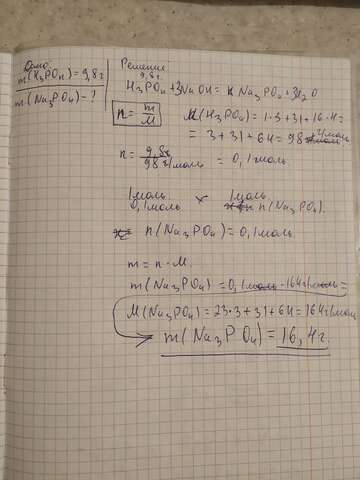 Дано:
m(H₃PO₄)=9,8г
m(Na₃PO₄)-?
Решение
9,8г
H₃PO₄+3NaOH= Na₃PO₄+3H₂O
n=m/M
M(H₃PO₄)=1·3+31+16·4=
=3+31+64=98 г/моль
n=9,8г/98г/моль=0,1моль
1моль 1моль
0,1моль x n(Na₃PO₄)
n(Na₃PO₄)=0,1моль
m=n·M
m(Na₃PO₄)=0,1моль·164г/моль=
M(Na₃PO₄)=23·3+31+64=164г/моль
m(Na₃PO₄)=16,4г.